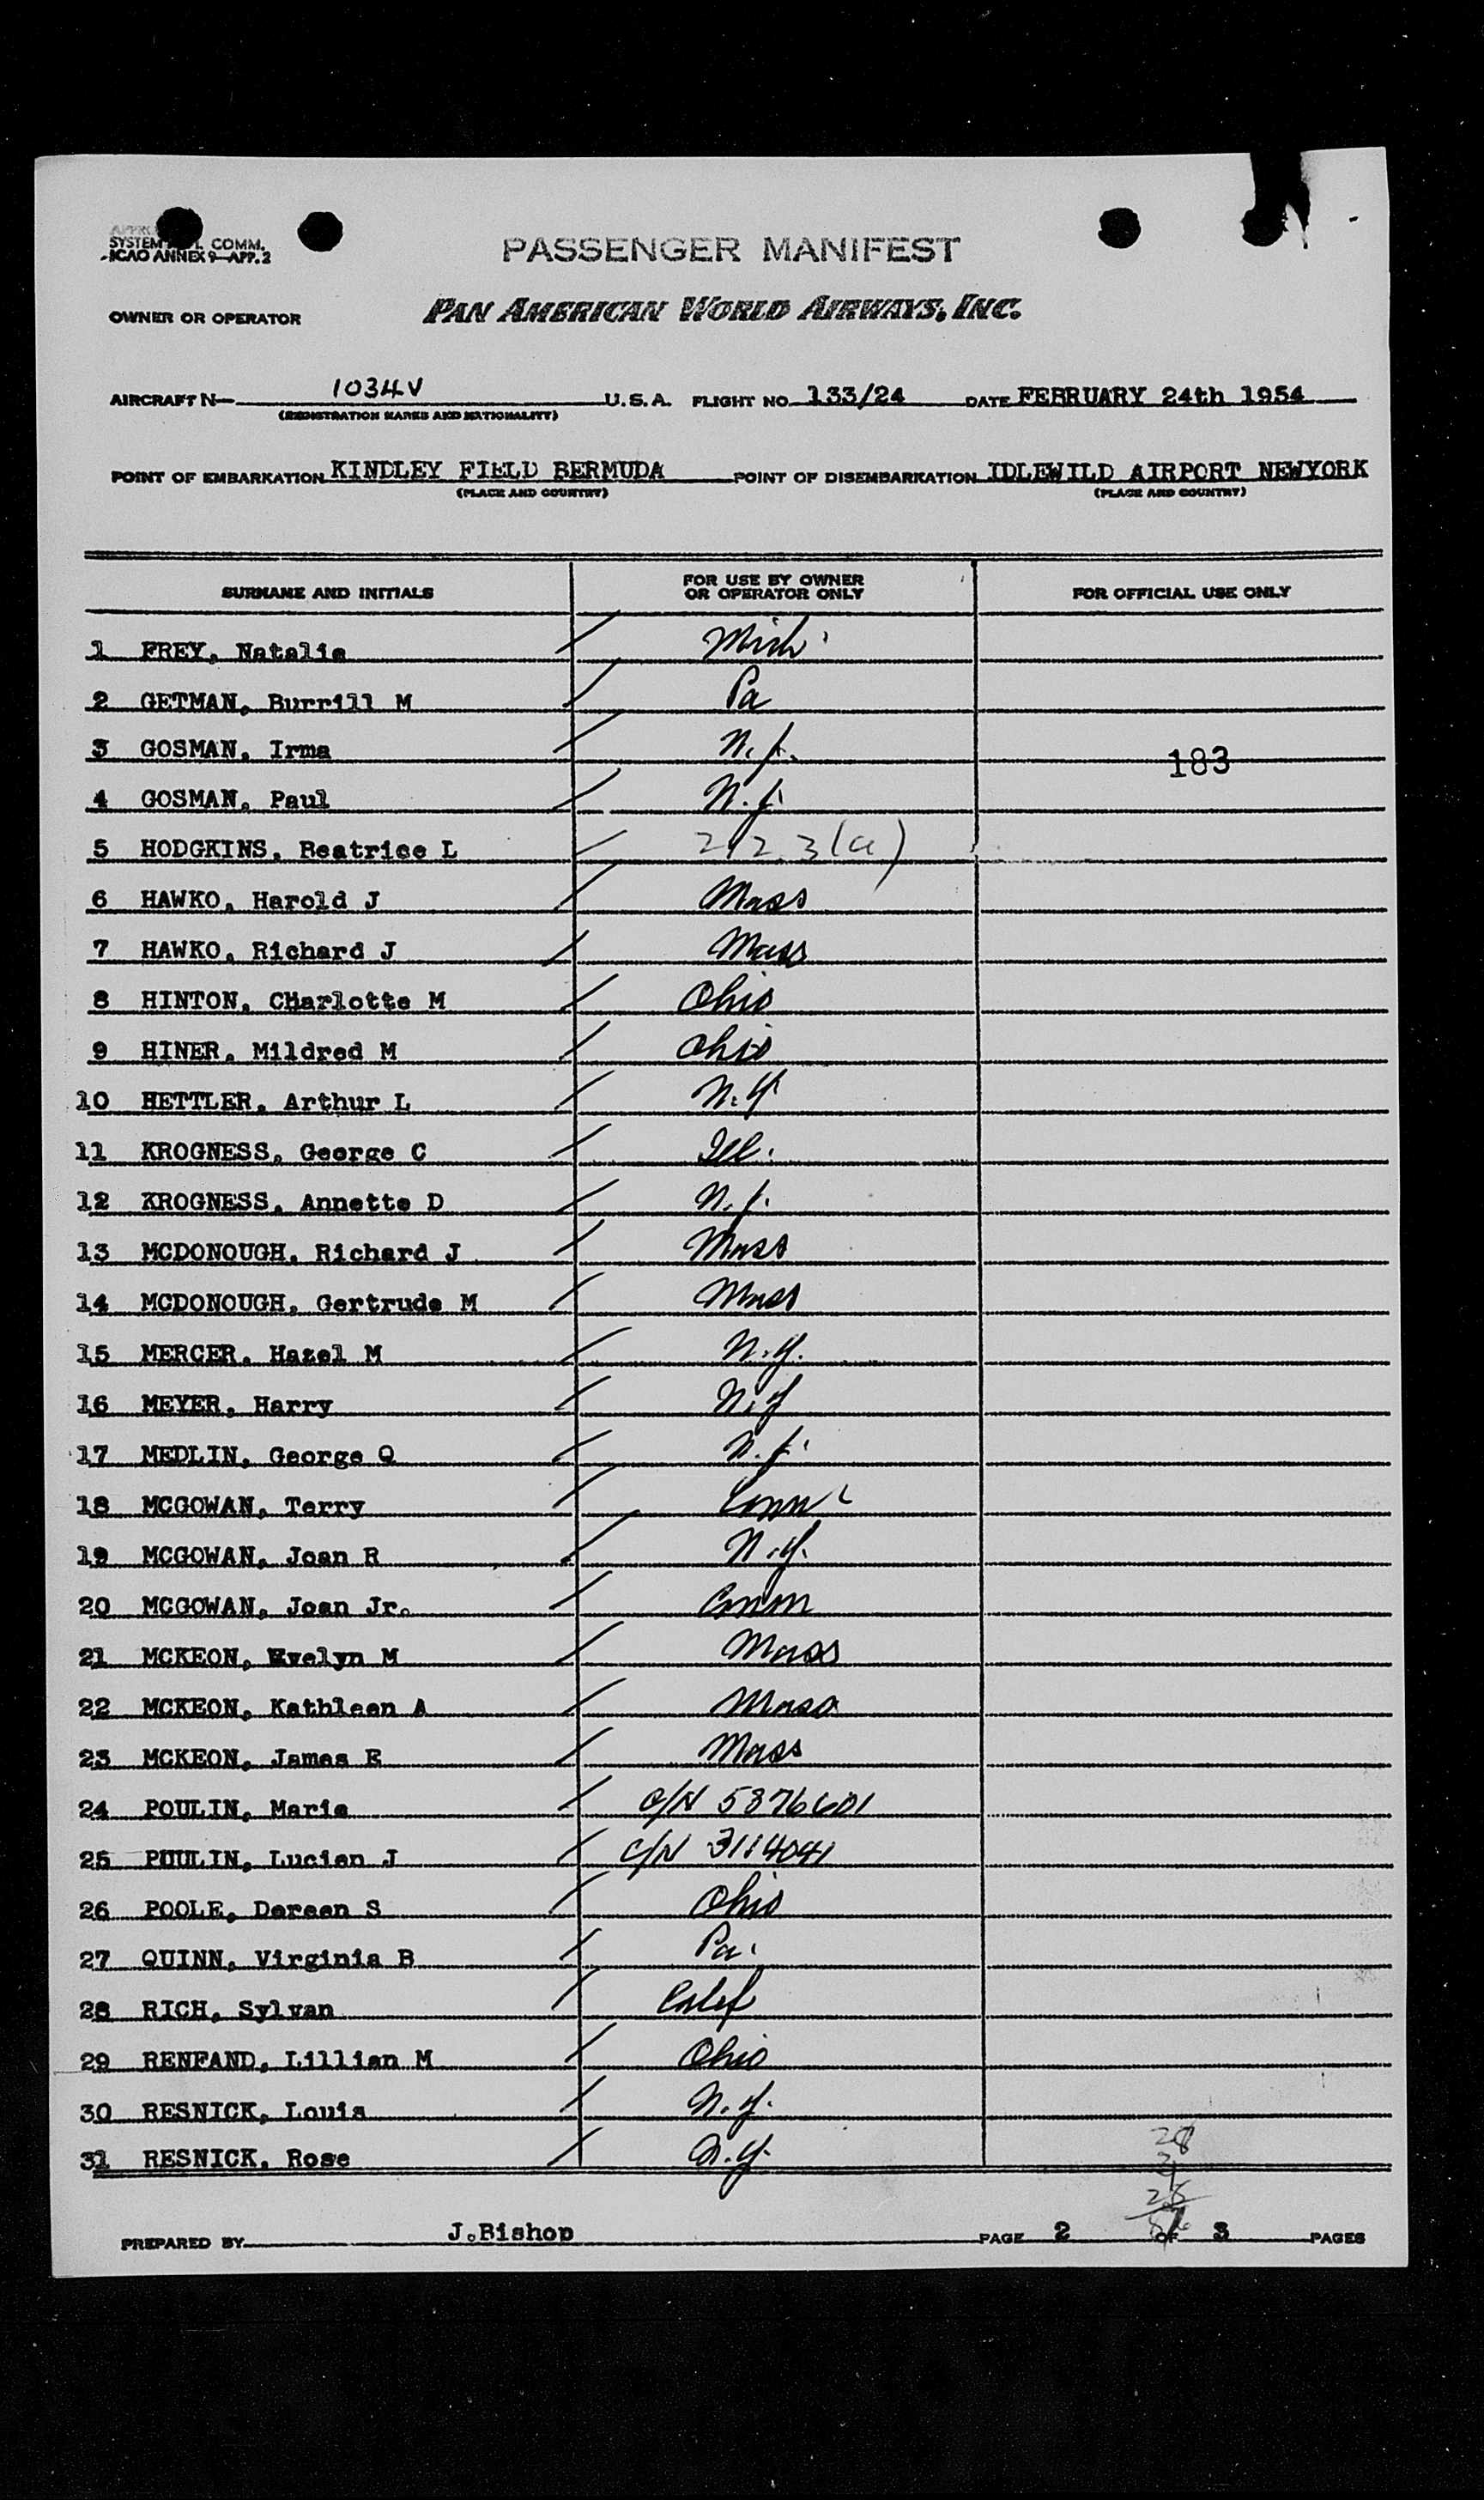 SYSTEM COMM.
ICAO ANNEX 9—APP. 2
PASSENGER MANIFEST
OWNER OR OPERATOR PAN AMERICAN WORLD AIRWAYS, INC.
AIRCRAFT N— 1034V U.S.A. FLIGHT NO. 133/24 DATE FEBRUARY 24th 1954
(REGISTRATION MARKS AND NATIONALITY)
POINT OF EMBARKATION KINDLEY FIELD BERMUDA POINT OF DISEMBARKATION IDLEWILD AIRPORT NEWYORK
(PLACE AND COUNTRY) (PLACE AND COUNTRY)
SURNAME AND INITIALS FOR USE BY OWNER OR OPERATOR ONLY FOR OFFICIAL USE ONLY
1 FREY, Natalie / Mich.
2 GETMAN, Burrill M / Pa
3 GOSMAN, Irma / N.J. 183
4 GOSMAN, Paul / N.J.
5 HODGKINS, Beatrice L / 212.3(a)
6 HAWKO, Harold J / Mass
7 HAWKO, Richard J / Mass
8 HINTON, CHarlotte M / Ohio
9 HINER, Mildred M / Ohio
10 HETTLER, Arthur L / N.Y.
11 KROGNESS, George C / Ill.
12 KROGNESS, Annette D / N.J.
13 MCDONOUGH, Richard J / Mass
14 MCDONOUGH, Gertrude M / Mass
15 MERCER, Hazel M / N.Y.
16 MEYER, Harry / N.Y
17 MEDLIN, George Q / N.J.
18 MCGOWAN, Terry / Conn
19 MCGOWAN, Joan R / N.Y.
20 MCGOWAN, Joan Jr. / Conn
21 MCKEON, Evelyn M / Mass
22 MCKEON, Kathleen A / Mass
23 MCKEON, James E / Mass
24 POULIN, Marie / C/N 5876601
25 POULIN, Lucien J / C/N 3114041
26 POOLE, Doreen S / Ohio
27 QUINN, Virginia B / Pa.
28 RICH, Sylvan / Calif
29 RENFAND, Lillian M / Ohio
30 RESNICK, Louis / N.Y.
31 RESNICK, Rose / N.Y.
28
31
28
PREPARED BY J.Bishop PAGE 2 OF 3 PAGES